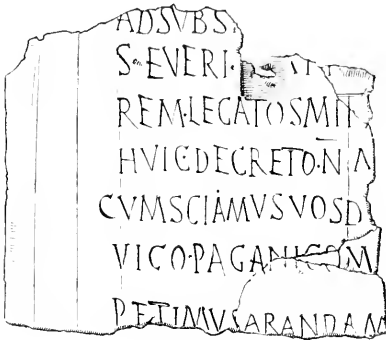 ADSVBS
S·EVERI·
REM·LEGATOSMIT
HVIC·DECRETO·N
CVMSCIÁMVSVOSD
VICO·PAGANI
PETIMVS ARANDAM